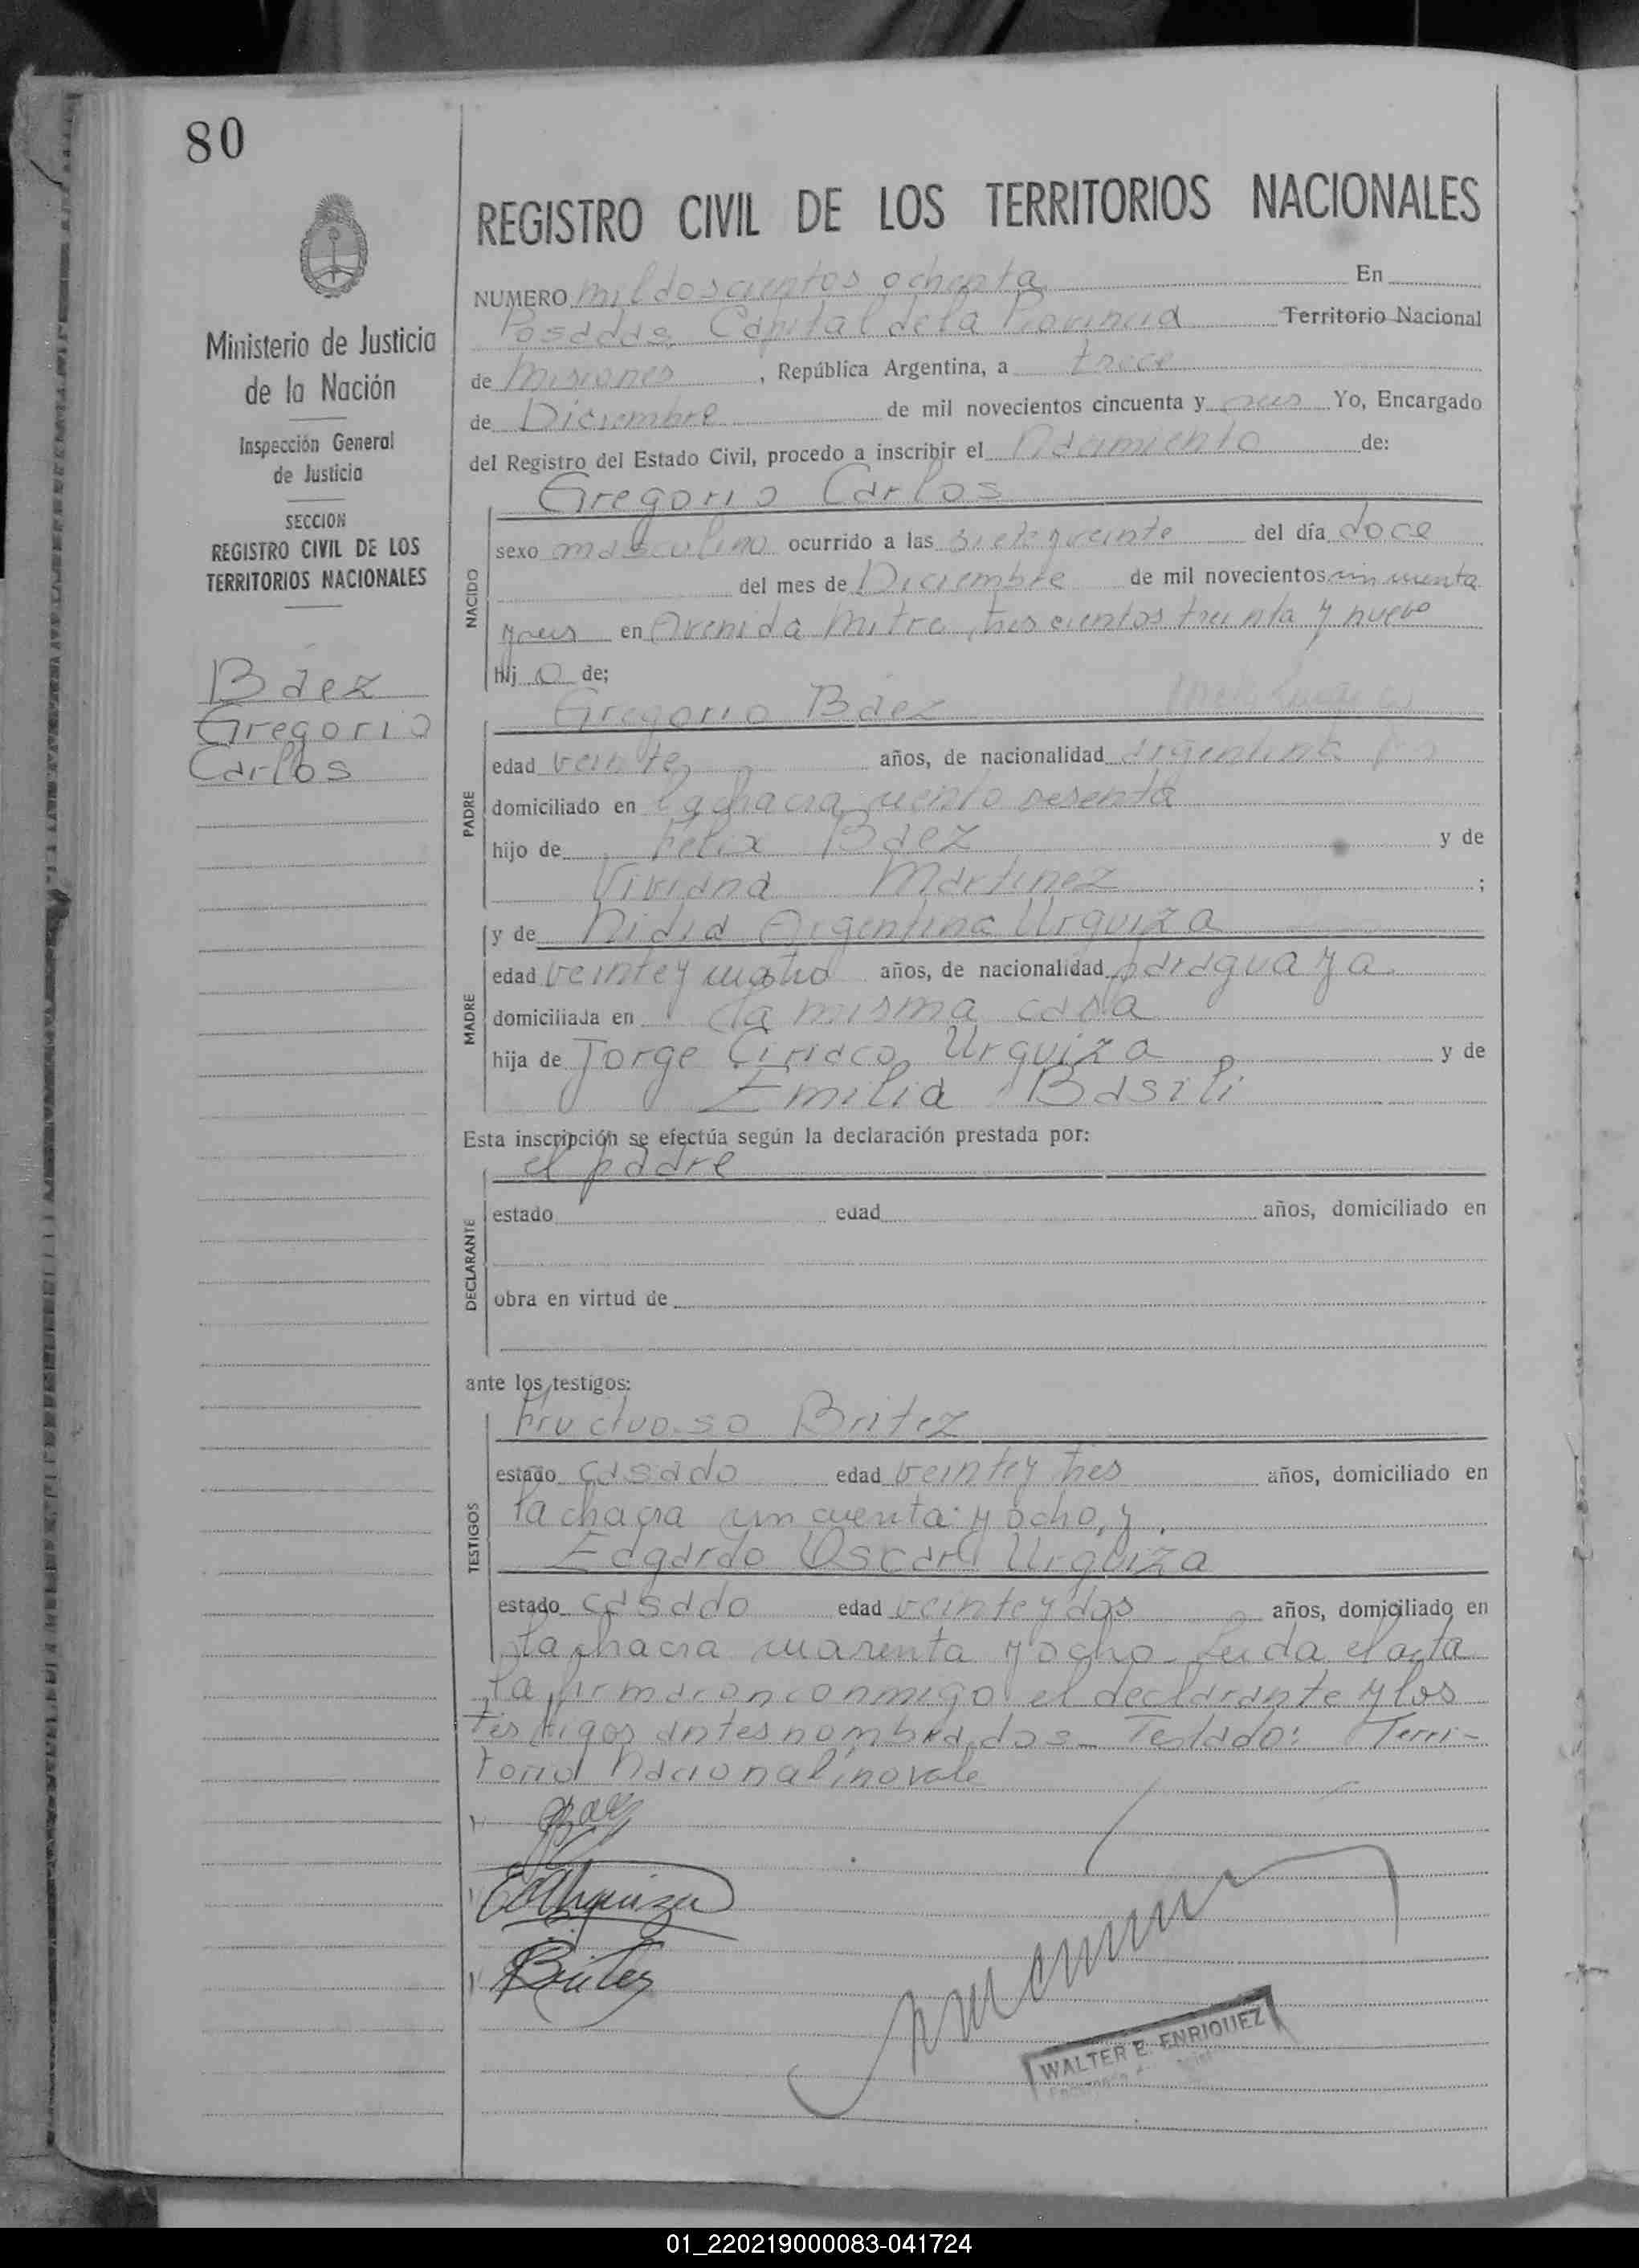 80
REGISTRO CIVIL DE LOS TERRITORIOS NACIONALES
NUMERO mil doscientos ochenta En
Posadas, Capital de la Provincia Territorio Nacional
de Misiones, República Argentina, a trece
de Diciembre de mil novecientos cincuenta y seis Yo, Encargado
del Registro del Estado Civil, procedo a inscribir el Nacimiento de:
Gregorio Carlos
NACIDO
sexo masculino ocurrido a las siete y veinte del día doce
del mes de Diciembre de mil novecientos cincuenta
y seis en Avenida Mitre, trescientos treinta y nueve
Hij o de;
Gregorio Báez
PADRE
edad veinte años, de nacionalidad argentina
domiciliado en la chacra ciento sesenta
hijo de Félix Báez y de
Viviana Martinez ;
MADRE
y de Nidia Argentina Urquiza
edad veinte y cuatro años, de nacionalidad paraguaya
domiciliada en la misma casa
hija de Jorge Ciriaco Urquiza y de
Emilia Basili
Esta inscripción se efectúa según la declaración prestada por:
el padre
DECLARANTE
estado edad años, domiciliado en
obra en virtud de
ante los testigos:
Fructuoso Britez
TESTIGOS
estado casado edad veinte y tres años, domiciliado en
la chacra cincuenta y ocho, y
Edgardo Oscar Urquiza
estado casado edad veinte y dos años, domiciliado en
la chacra cuarenta y ocho. Leida el acta
la firmaron conmigo el declarante y los
testigos antes nombrados. Testado: Terri-
torio Nacional: no vale
Urquiza
Britez
WALTER E. ENRIQUEZ
Ministerio de Justicia
de la Nación
Inspección General
de Justicia
SECCION
REGISTRO CIVIL DE LOS
TERRITORIOS NACIONALES
Báez
Gregorio
Carlos
01_220219000083-041724